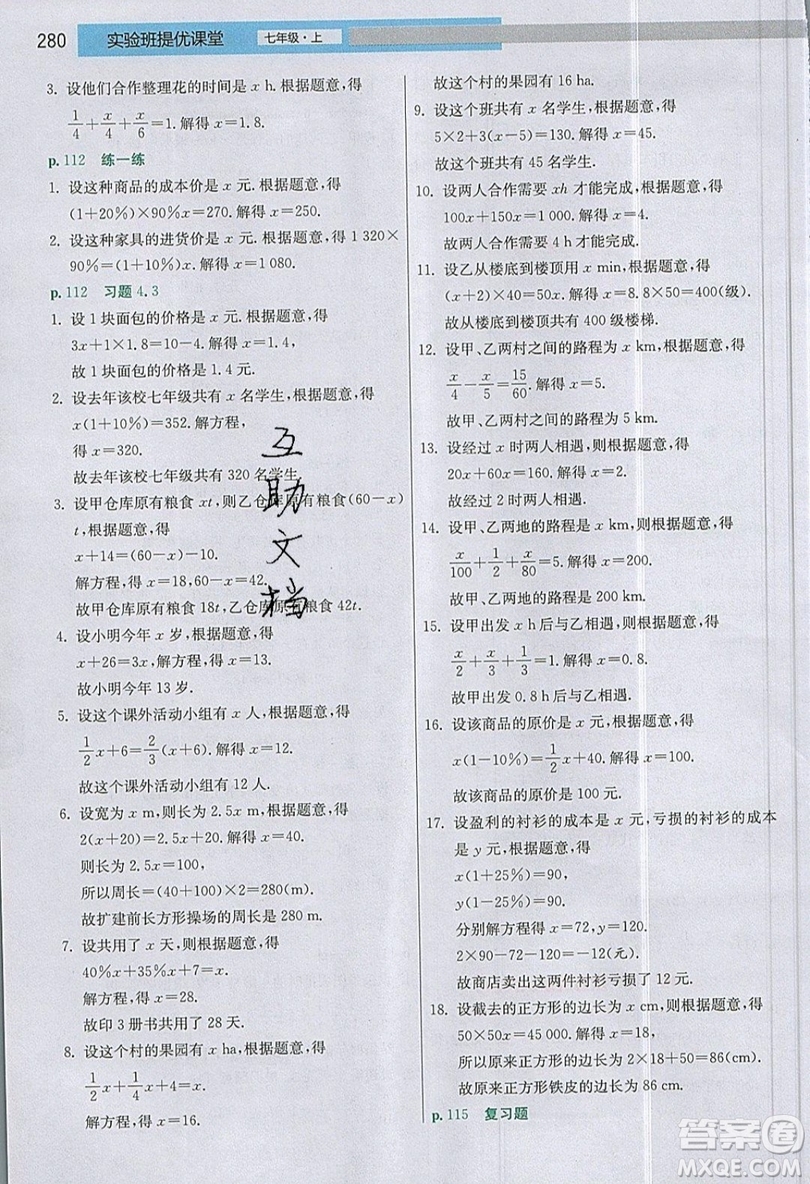 280 实验班提优课堂 七年级·上
3. 设他们合作整理花的时间是 x h. 根据题意, 得
1/4+x/4+x/6=1. 解得 x=1.8.
p.112 练一练
1. 设这种商品的成本价是 x 元. 根据题意, 得
(1+20%)×90%x=270. 解得 x=250.
2. 设这种家具的进货价是 x 元. 根据题意, 得 1 320×
90%=(1+10%)x. 解得 x=1 080.
p.112 习题 4.3
1. 设 1 块面包的价格是 x 元. 根据题意, 得
3x+1×1.8=10-4. 解得 x=1.4,
故 1 块面包的价格是 1.4 元.
2. 设去年该校七年级共有 x 名学生, 根据题意, 得
x(1+10%)=352. 解方程,
得 x=320.
故去年该校七年级共有 320 名学生.
3. 设甲仓库原有粮食 xt, 则乙仓库原有粮食(60-x)
t, 根据题意, 得
x+14=(60-x)-10.
解方程, 得 x=18, 60-x=42.
故甲仓库原有粮食 18t, 乙仓库原有粮食 42t.
4. 设小明今年 x 岁, 根据题意, 得
x+26=3x, 解方程, 得 x=13.
故小明今年 13 岁.
5. 设这个课外活动小组有 x 人, 根据题意, 得
1/2x+6=2/3(x+6). 解得 x=12.
故这个课外活动小组有 12 人.
6. 设宽为 x m, 则长为 2.5x m, 根据题意, 得
2(x+20)=2.5x+20. 解得 x=40.
则长为 2.5x=100.
所以周长=(40+100)×2=280(m).
故扩建前长方形操场的周长是 280 m.
7. 设共用了 x 天, 根据题意, 得
40%x+35%x+7=x.
解方程, 得 x=28.
故印 3 册书共用了 28 天.
8. 设这个村的果园有 x ha, 根据题意, 得
1/2x+1/4x+4=x.
解方程, 得 x=16.
故这个村的果园有 16 ha.
9. 设这个班共有 x 名学生, 根据题意, 得
5×2+3(x-5)=130. 解得 x=45.
故这个班共有 45 名学生.
10. 设两人合作需要 xh 才能完成, 根据题意, 得
100x+150x=1 000. 解得 x=4.
故两人合作需要 4 h 才能完成.
11. 设乙从楼底到楼顶用 x min, 根据题意, 得
(x+2)×40=50x. 解得 x=8. 8×50=400(级).
故从楼底到楼顶共有 400 级楼梯.
12. 设甲、乙两村之间的路程为 x km, 根据题意, 得
x/4-x/5=15/60. 解得 x=5.
故甲、乙两村之间的路程为 5 km.
13. 设经过 x 时两人相遇, 根据题意, 得
20x+60x=160. 解得 x=2.
故经过 2 时两人相遇.
14. 设甲、乙两地的路程为 x km, 则根据题意, 得
x/100+1/2+x/80=5. 解得 x=200.
故甲、乙两地的路程为 200 km.
15. 设甲出发 x h 后与乙相遇, 根据题意, 得
x/2+x/3+1/3=1. 解得 x=0.8.
故甲出发 0.8 h 后与乙相遇.
16. 设该商品的原价是 x 元, 根据题意, 得
x(1-10%)=1/2x+40. 解得 x=100.
故该商品的原价是 100 元.
17. 设盈利的衬衫的成本是 x 元, 亏损的衬衫的成本
是 y 元, 根据题意, 得
x(1+25%)=90,
y(1-25%)=90.
分别解方程, 得 x=72, y=120.
2×90-72-120=-12(元).
故商店卖出这两件衬衫亏损了 12 元.
18. 设截去的正方形的边长为 x cm, 则根据题意, 得
50×50x=45 000. 解得 x=18,
所以原来正方形的边长为 2×18+50=86(cm).
故原来正方形铁皮的边长为 86 cm.
p.115 复习题
互助文档
答案圈
MXQE.COM